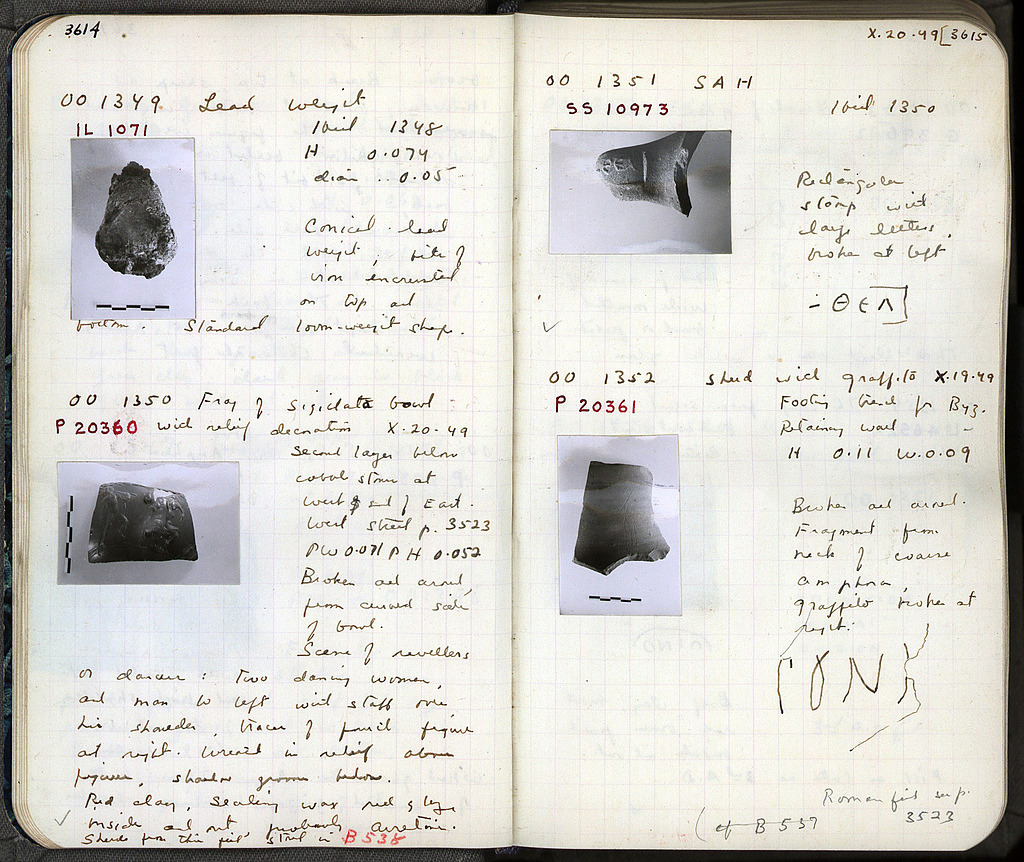 3614
OO 1349 Lead weight
IL 1071
Ibid 1348
H 0.074
diam. 0.05
Conical lead
weight, bits of
iron encrusted
on top and
bottom. Standard loom-weight shape.
OO 1350 Frag of sigillata bowl
P 20360 with relief decoration X-20-49
Second layer below
cobble stone at
West end of East-
West street p. 3523
PW 0.071 PH 0.052
Broken all around,
from curved side
of bowl.
Scene of revellers
or dancers: two dancing women,
and man to left with staff over
his shoulder, traces of fourth figure
at right. Wreath in relief above
figures, shallow groove below.
Red clay, sealing wax red glaze
inside and out, probably arretine.
Sherds from this fill stored in B 538
X-20-49 [3615
OO 1351 SAH
SS 10973
Ibid 1350
Rectangular
stamp with
large letters,
broken at left
ΘΕΛ
OO 1352 sherd with graffito X-19-49
P 20361
Footing trench for Byz.
Retaining wall
H 0.11 W. 0.09
Broken all around.
Fragment from
neck of coarse
amphora,
graffito broken at
right.
ΓΟΝ
Roman fill sup.
3523
(cf B 537